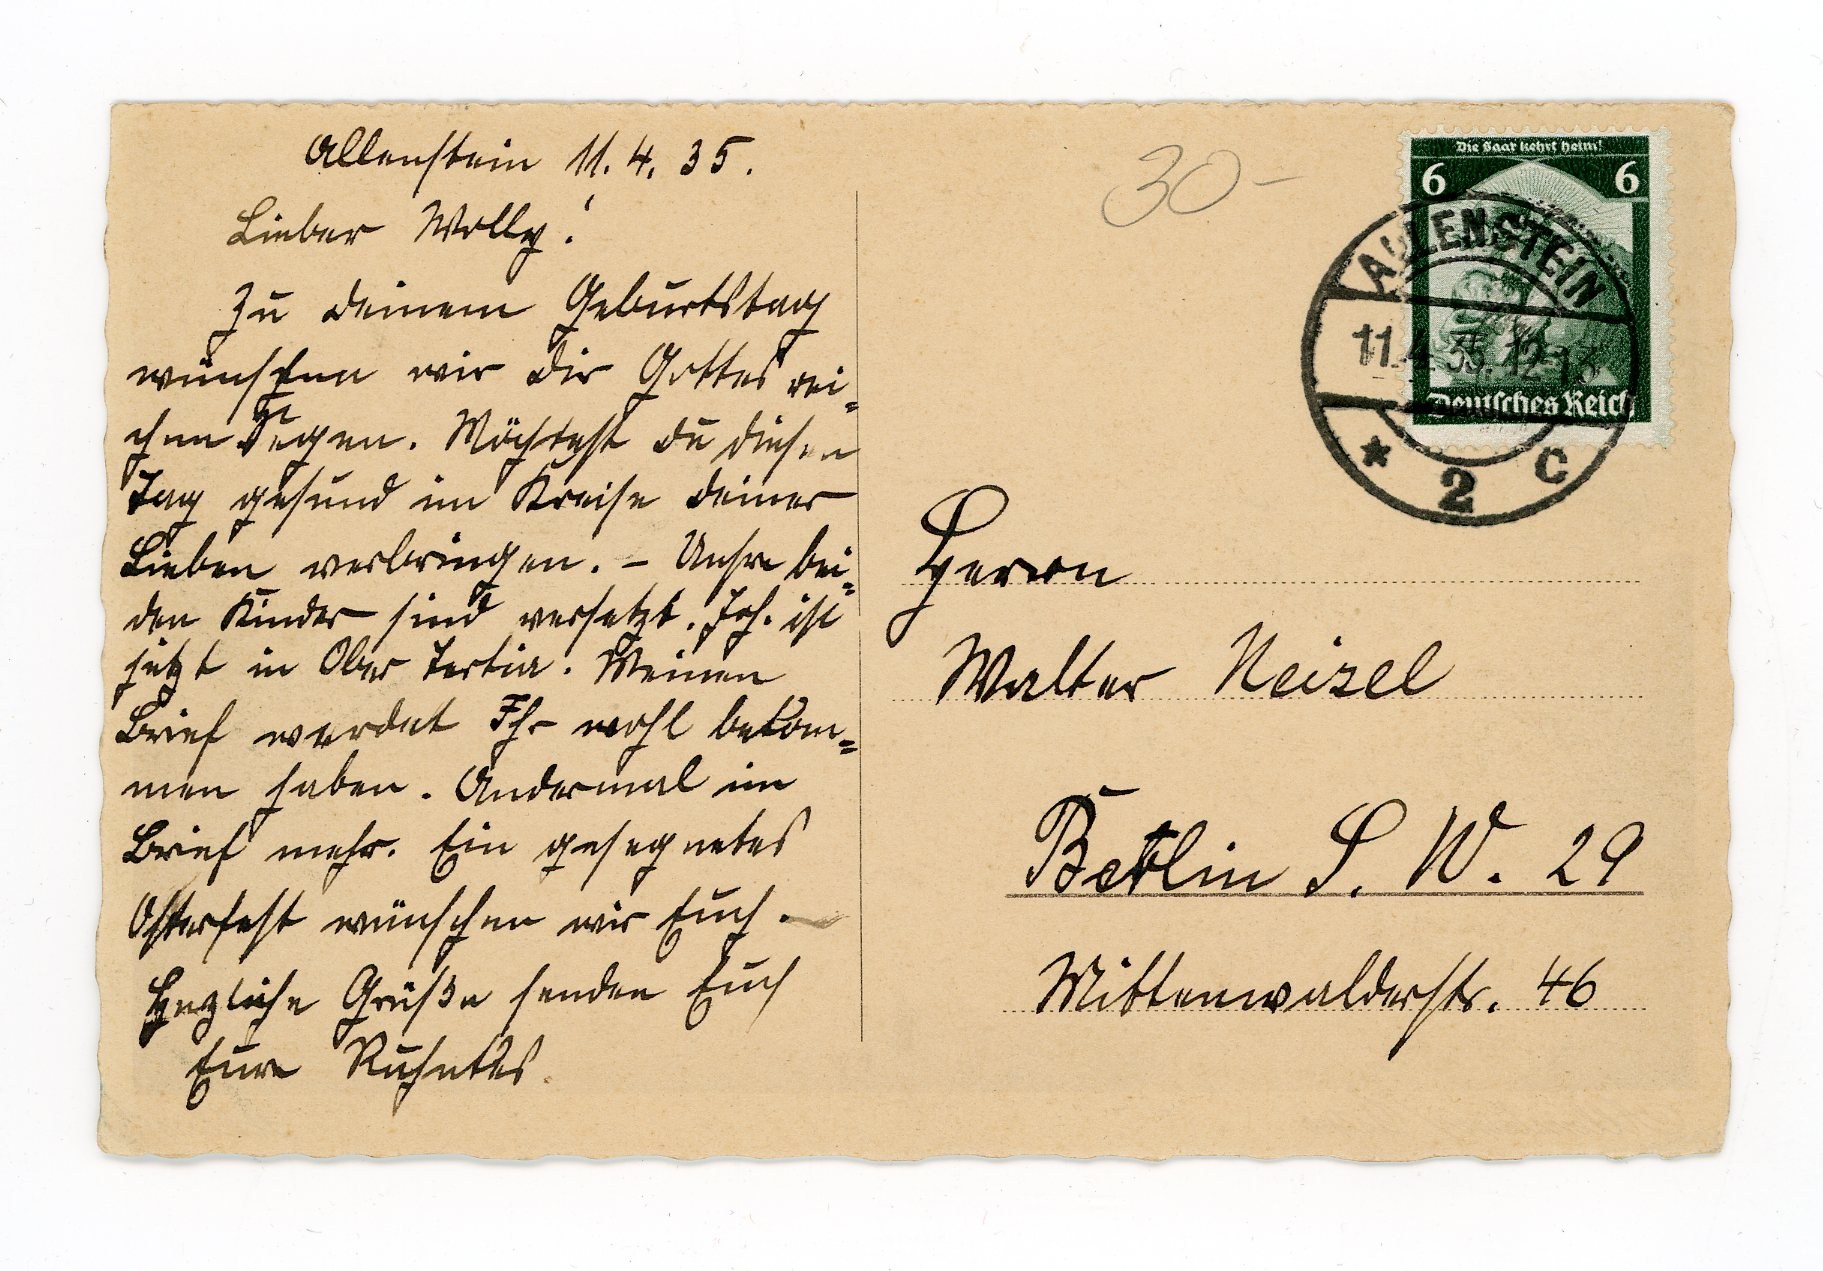 Allenstein 11. 4. 35.
Lieber Wolly!
Zu deinem Geburtstag
wünschen wir dir Gottes rei=
chen Segen. Möchtest du diesen
Tag gesund im Kreise deiner
Lieben verbringen. – Unsre bei=
den Kinder sind versetzt. Joh. ist
jetzt in Ober Tertia. Meinen
Brief werdet Ihr wohl bekom=
men haben. Andermal im
Brief mehr. Ein gesegnetes
Osterfest wünschen wir Euch.
Herzliche Grüße senden Euch
Eure
30-
Die Saar kehrt heim!
6 6
Deutsches Reich
ALLENSTEIN
11.4.35.12-13
* 2 C
Herrn
Walter Neisel
Berlin S. W. 29
Mittenwalderstr. 46